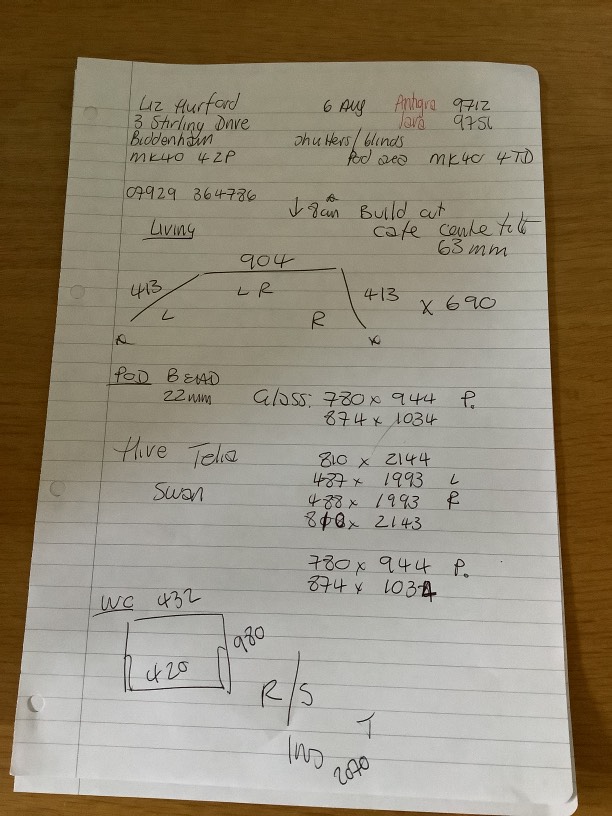 Liz Hurford 6 Aug Antigra 9712
3 Stirling Drive Java 9756
Biddenham shutters/blinds
MK40 4ZP Pod MK40 4TD
07929 364786
↓ 8cm Build out
Living cafe centre tilt
63mm
904
413 L R 413 x 690
L R
POD BEAD
22mm Glass: 780 x 944 P.
874 x 1034
Hive Telia 810 x 2144
487 x 1993 L
Swan 488 x 1993 R
810 x 2143
780 x 944 P.
874 x 1034
WC 432
980
420
R/S
T
INS
2070